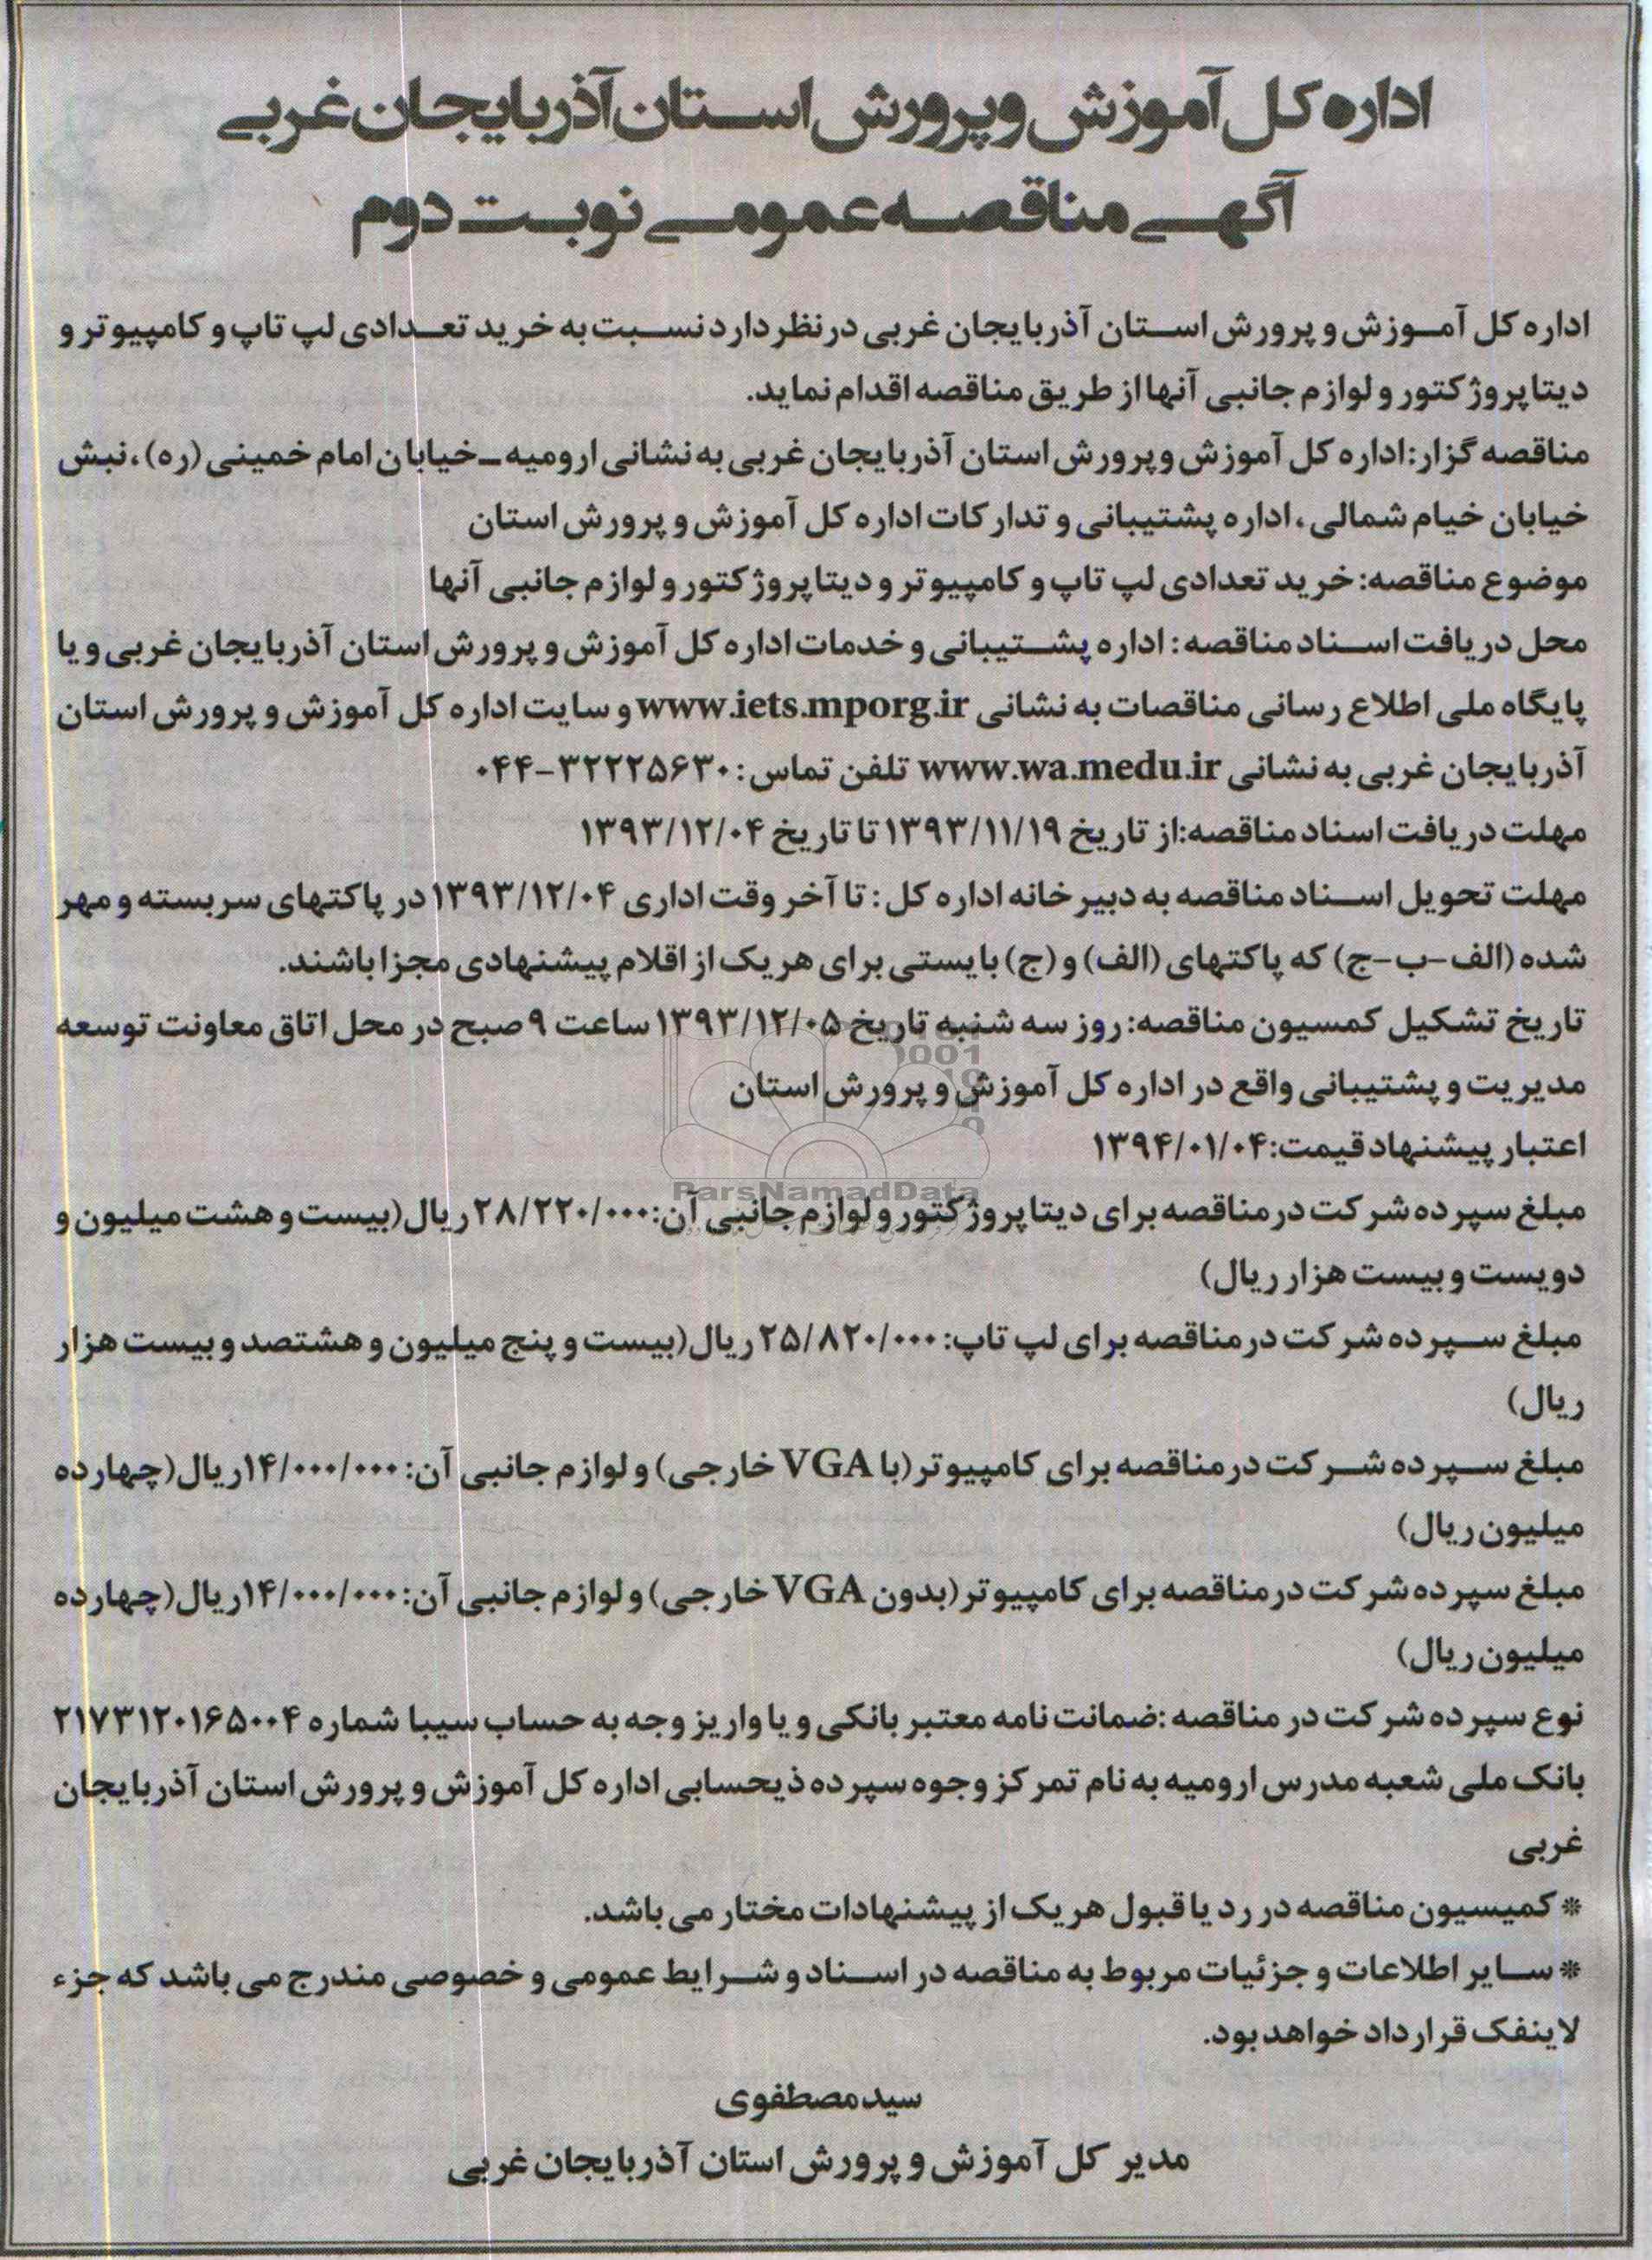 اداره کل آموزش و پرورش استان آذربایجان غربی
آگهی مناقصه عمومی نوبت دوم
اداره کل آموزش و پرورش استان آذربایجان غربی در نظر دارد نسبت به خرید تعدادی لپ تاپ و کامپیوتر و
دیتا پروژکتور و لوازم جانبی آنها از طریق مناقصه اقدام نماید.
مناقصه گزار: اداره کل آموزش و پرورش استان آذربایجان غربی به نشانی ارومیه - خیابان امام خمینی (ره)، نبش
خیابان خیام شمالی، اداره پشتیبانی و تدارکات اداره کل آموزش و پرورش استان
موضوع مناقصه: خرید تعدادی لپ تاپ و کامپیوتر و دیتا پروژکتور و لوازم جانبی آنها
محل دریافت اسناد مناقصه: اداره پشتیبانی و خدمات اداره کل آموزش و پرورش استان آذربایجان غربی و یا
پایگاه ملی اطلاع رسانی مناقصات به نشانی www.iets.mporg.ir و سایت اداره کل آموزش و پرورش استان
آذربایجان غربی به نشانی www.wa.medu.ir تلفن تماس: ۳۲۲۲۵۶۳۰-۰۴۴
مهلت دریافت اسناد مناقصه: از تاریخ ۱۳۹۳/۱۱/۱۹ تا تاریخ ۱۳۹۳/۱۲/۰۴
مهلت تحویل اسناد مناقصه به دبیرخانه اداره کل: تا آخر وقت اداری ۱۳۹۳/۱۲/۰۴ در پاکتهای سربسته و مهر
شده (الف-ب-ج) که پاکتهای (الف) و (ج) بایستی برای هر یک از اقلام پیشنهادی مجزا باشند.
تاریخ تشکیل کمسیون مناقصه: روز سه شنبه تاریخ ۱۳۹۳/۱۲/۰۵ ساعت ۹ صبح در محل اتاق معاونت توسعه
مدیریت و پشتیبانی واقع در اداره کل آموزش و پرورش استان
اعتبار پیشنهاد قیمت: ۱۳۹۴/۰۱/۰۴
ParsNamadData
مبلغ سپرده شرکت در مناقصه برای دیتا پروژکتور و لوازم جانبی آن: ۲۸/۲۲۰/۰۰۰ ریال (بیست و هشت میلیون و
دویست و بیست هزار ریال)
مبلغ سپرده شرکت در مناقصه برای لپ تاپ: ۲۵/۸۲۰/۰۰۰ ریال (بیست و پنج میلیون و هشتصد و بیست هزار
ریال)
مبلغ سپرده شرکت در مناقصه برای کامپیوتر (با VGA خارجی) و لوازم جانبی آن: ۱۴/۰۰۰/۰۰۰ ریال (چهارده
میلیون ریال)
مبلغ سپرده شرکت در مناقصه برای کامپیوتر (بدون VGA خارجی) و لوازم جانبی آن: ۱۴/۰۰۰/۰۰۰ ریال (چهارده
میلیون ریال)
نوع سپرده شرکت در مناقصه: ضمانت نامه معتبر بانکی و یا واریز وجه به حساب سیبا شماره ۲۱۷۳۱۲۰۱۶۵۰۰۴
بانک ملی شعبه مدرس ارومیه به نام تمرکز وجوه سپرده ذیحسابی اداره کل آموزش و پرورش استان آذربایجان
غربی
* کمیسیون مناقصه در رد یا قبول هر یک از پیشنهادات مختار می باشد.
* سایر اطلاعات و جزئیات مربوط به مناقصه در اسناد و شرایط عمومی و خصوصی مندرج می باشد که جزء
لاینفک قرارداد خواهد بود.
سید مصطفوی
مدیر کل آموزش و پرورش استان آذربایجان غربی